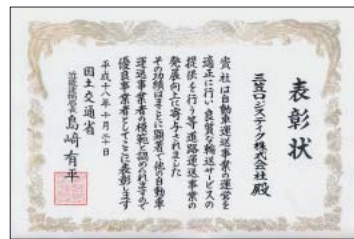 表彰状
三笠ロジスティク株式会社 殿
貴社は自動車運送事業の運営を
適正に行い良質な輸送サービスの
提供を行う等道路運送事業の
発展向上に寄与されました
その功績はまことに顕著で他の自動車
運送事業者の模範と認められますので
優良事業者としてここに表彰します
平成十八年十月二十日
国土交通省
近畿運輸局長 島崎有平